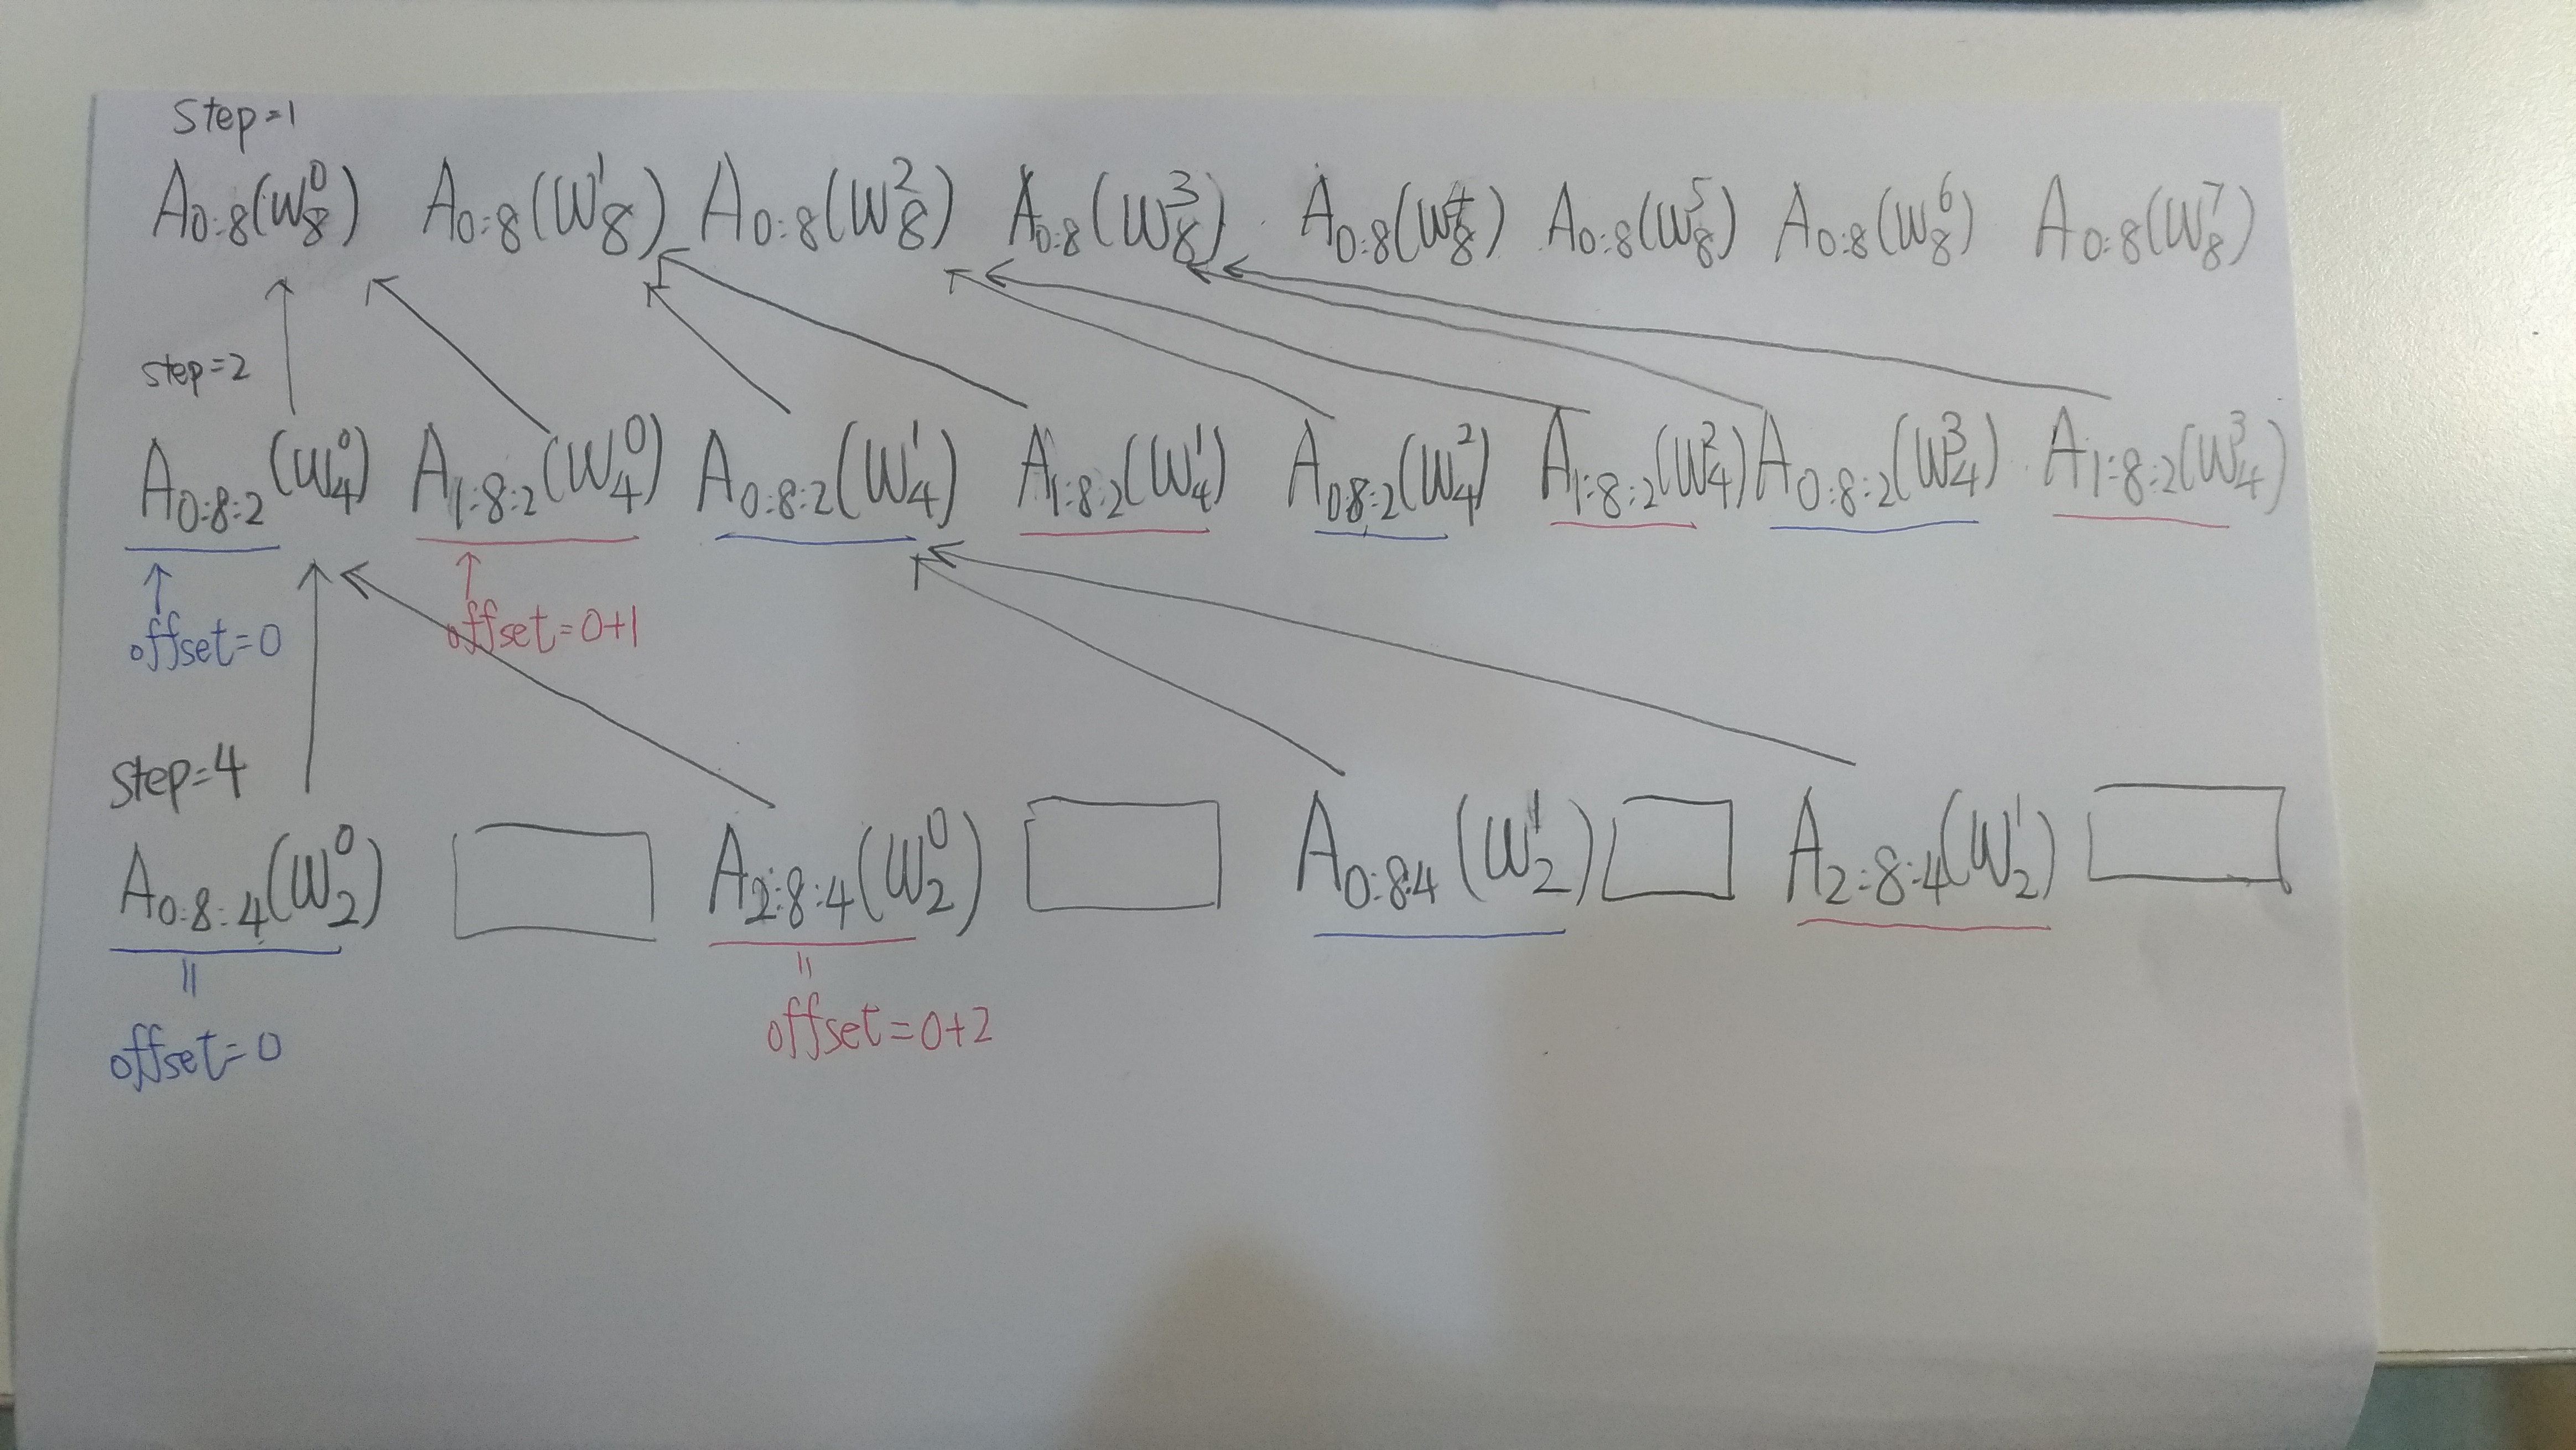 Step=1
A0:8(W8^0) A0:8(W8^1) A0:8(W8^2) A0:8(W8^3) A0:8(W8^4) A0:8(W8^5) A0:8(W8^6) A0:8(W8^7)
step=2
A0:8:2(W4^0) A1:8:2(W4^0) A0:8:2(W4^1) A1:8:2(W4^1) A0:8:2(W4^2) A1:8:2(W4^2) A0:8:2(W4^3) A1:8:2(W4^3)
offset=0 offset=0+1
Step=4
A0:8:4(W2^0) A2:8:4(W2^0) A0:8:4(W2^1) A2:8:4(W2^1)
=
=
offset=0 offset=0+2